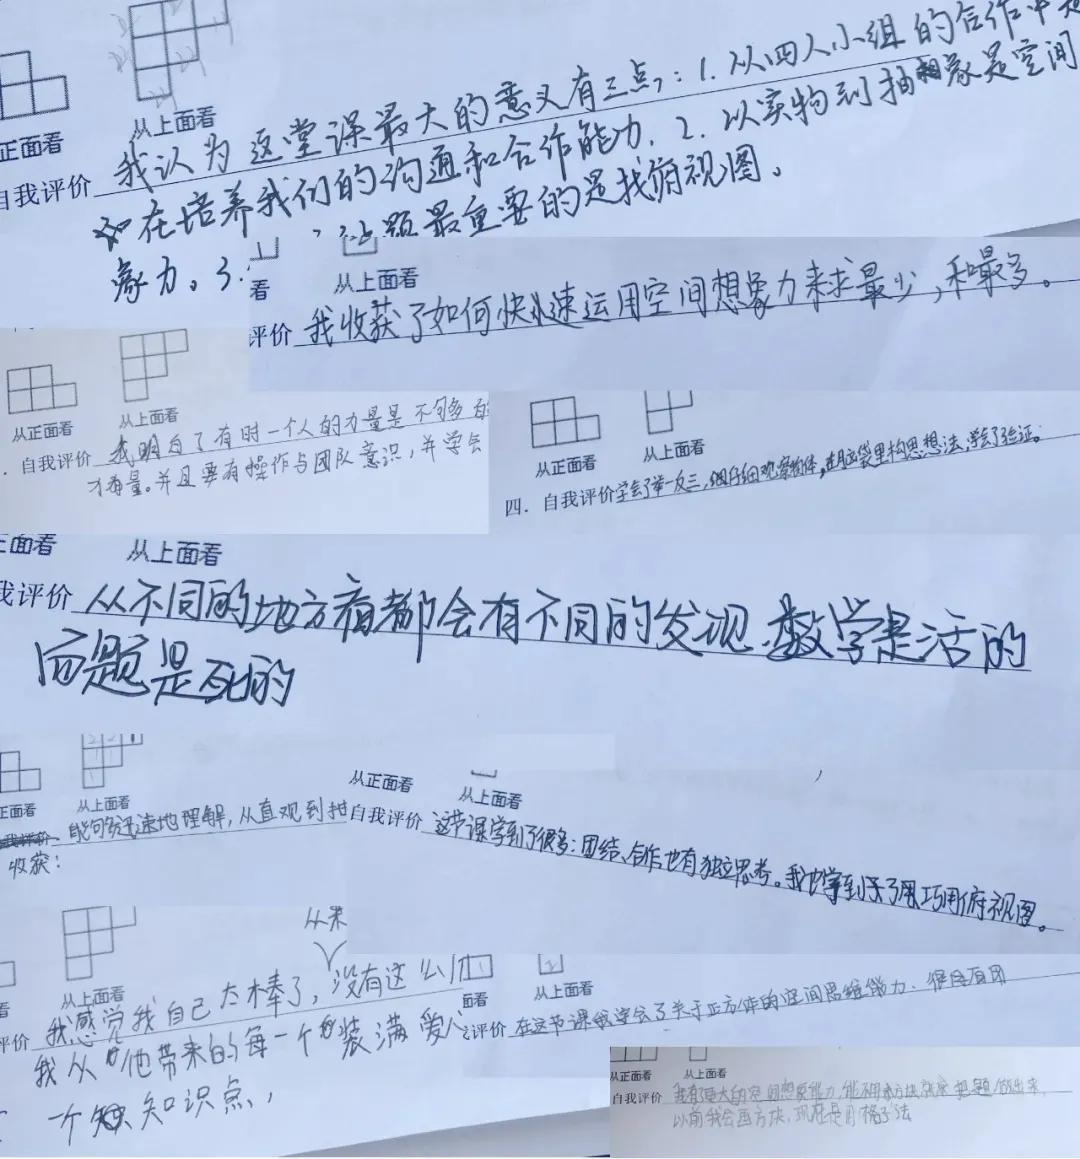 正面看
从上面看
自我评价 我认为这堂课最大的意义有三点：1. 从四人小组的合作中
在培养我们的沟通和合作能力. 2. 以实物到抽象是空间
象力。3. 题最重要的是找俯视图。
看
从上面看
评价 我收获了如何快速运用空间想象力来求最少，和最多。
从正面看
从上面看
. 自我评价 我明白了有时一个人的力量是不够
才有量。并且要有操作与团队意识，并学会
从正面看
从上面看
四．自我评价 学会了举一反三，细仔细观察物体，在脑袋里构思想法，学会了验证。
正面看
从上面看
我评价 从不同的地方看都会有不同的发现. 数学是活的
而题是死的
正面看
从上面看
能够迅速地理解，从直观到抽
收获：
从正面看
从上面看
自我评价 这节课学到了很多：团结、合作也有独立思考。我也学到了用俯视图。
从来
从上面看
评价 我感觉我自己太棒了，没有这么
我从他带来的每一个装满爱
一个知识点，
面看
从上面看
评价 在这节课我学会了关于正方体的空间思维能力.
从正面看
从上面看
自我评价 我有了更大的空间想象能力，能不用方块就把题做出来，
以前我会画方块，现在是用格子法